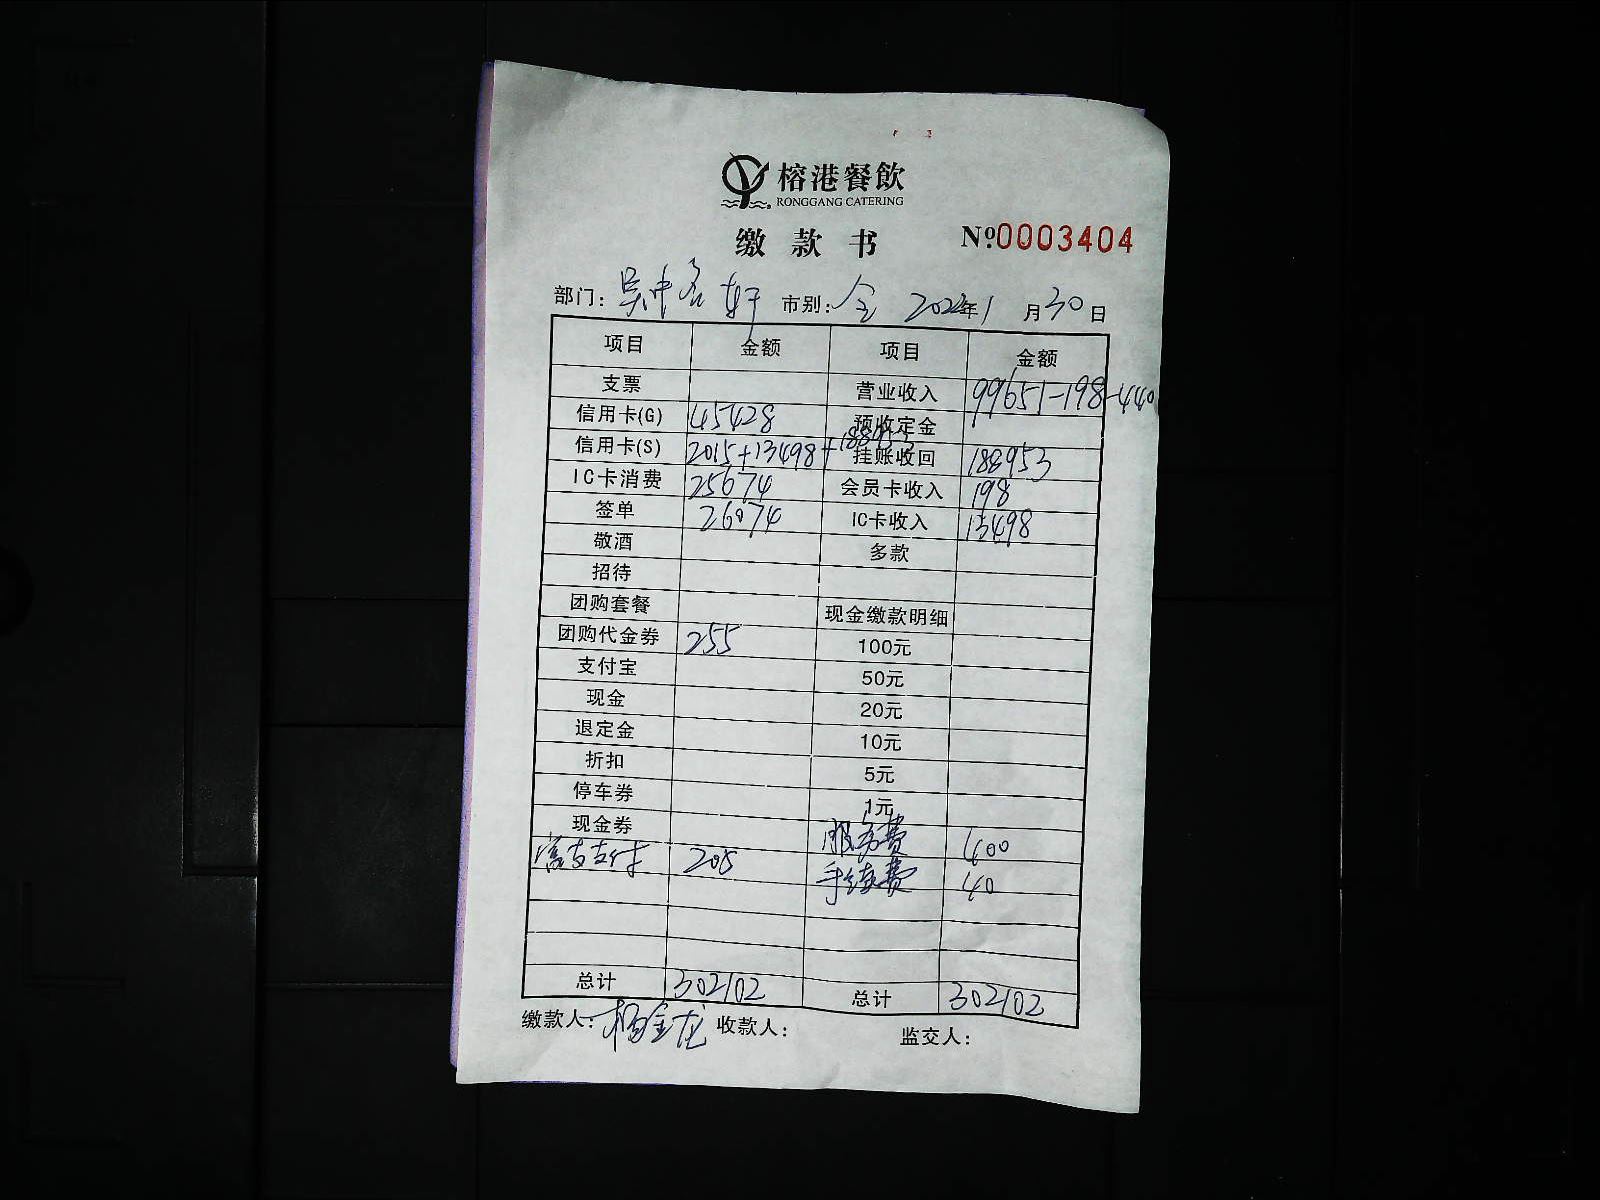 榕港餐飲
RONGGANG CATERING
缴款书 №0003404
部门: 吴中名轩 市别: 全 2022年1月30日
项目 金额 项目 金额
支票 营业收入 99651-198-440
信用卡(G) 45428 预收定金
信用卡(S) 2015+13498+188953 挂账收回 188953
IC卡消费 25674 会员卡收入 198
签单 26074 IC卡收入 13498
敬酒 多款
招待
团购套餐 现金缴款明细
团购代金券 255 100元
支付宝 50元
现金 20元
退定金 10元
折扣 5元
停车券 1元
现金券 服务费 400
支付 205 手续费 40
总计 302102 总计 302102
缴款人: 杨金龙 收款人: 监交人: